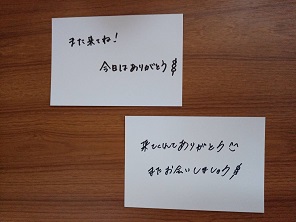 また来てね!
今日はありがとう
来てくれてありがとう
またお会いしましょう